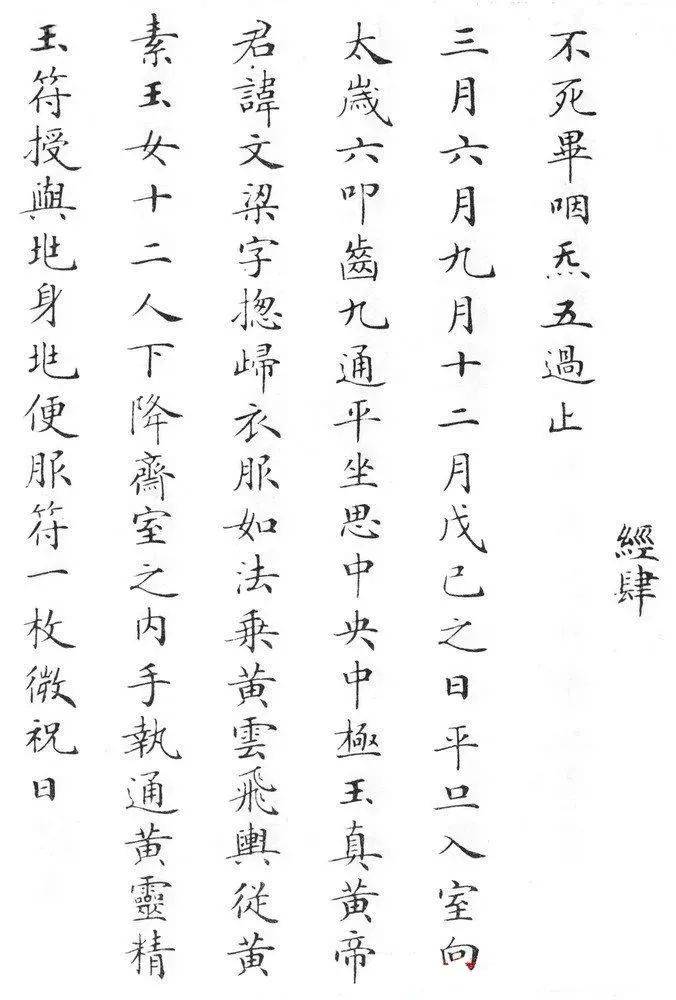 經肆
不死畢咽炁五過止
三月六月九月十二月戊己之日平旦入室向
太歲六叩齒九通平坐思中央中極玉真黃帝
君諱文梁字揔歸衣服如法乘黃雲飛輿從黃
素玉女十二人下降齋室之內手執通黃靈精
玉符授與兆身兆便服符一枚微祝曰